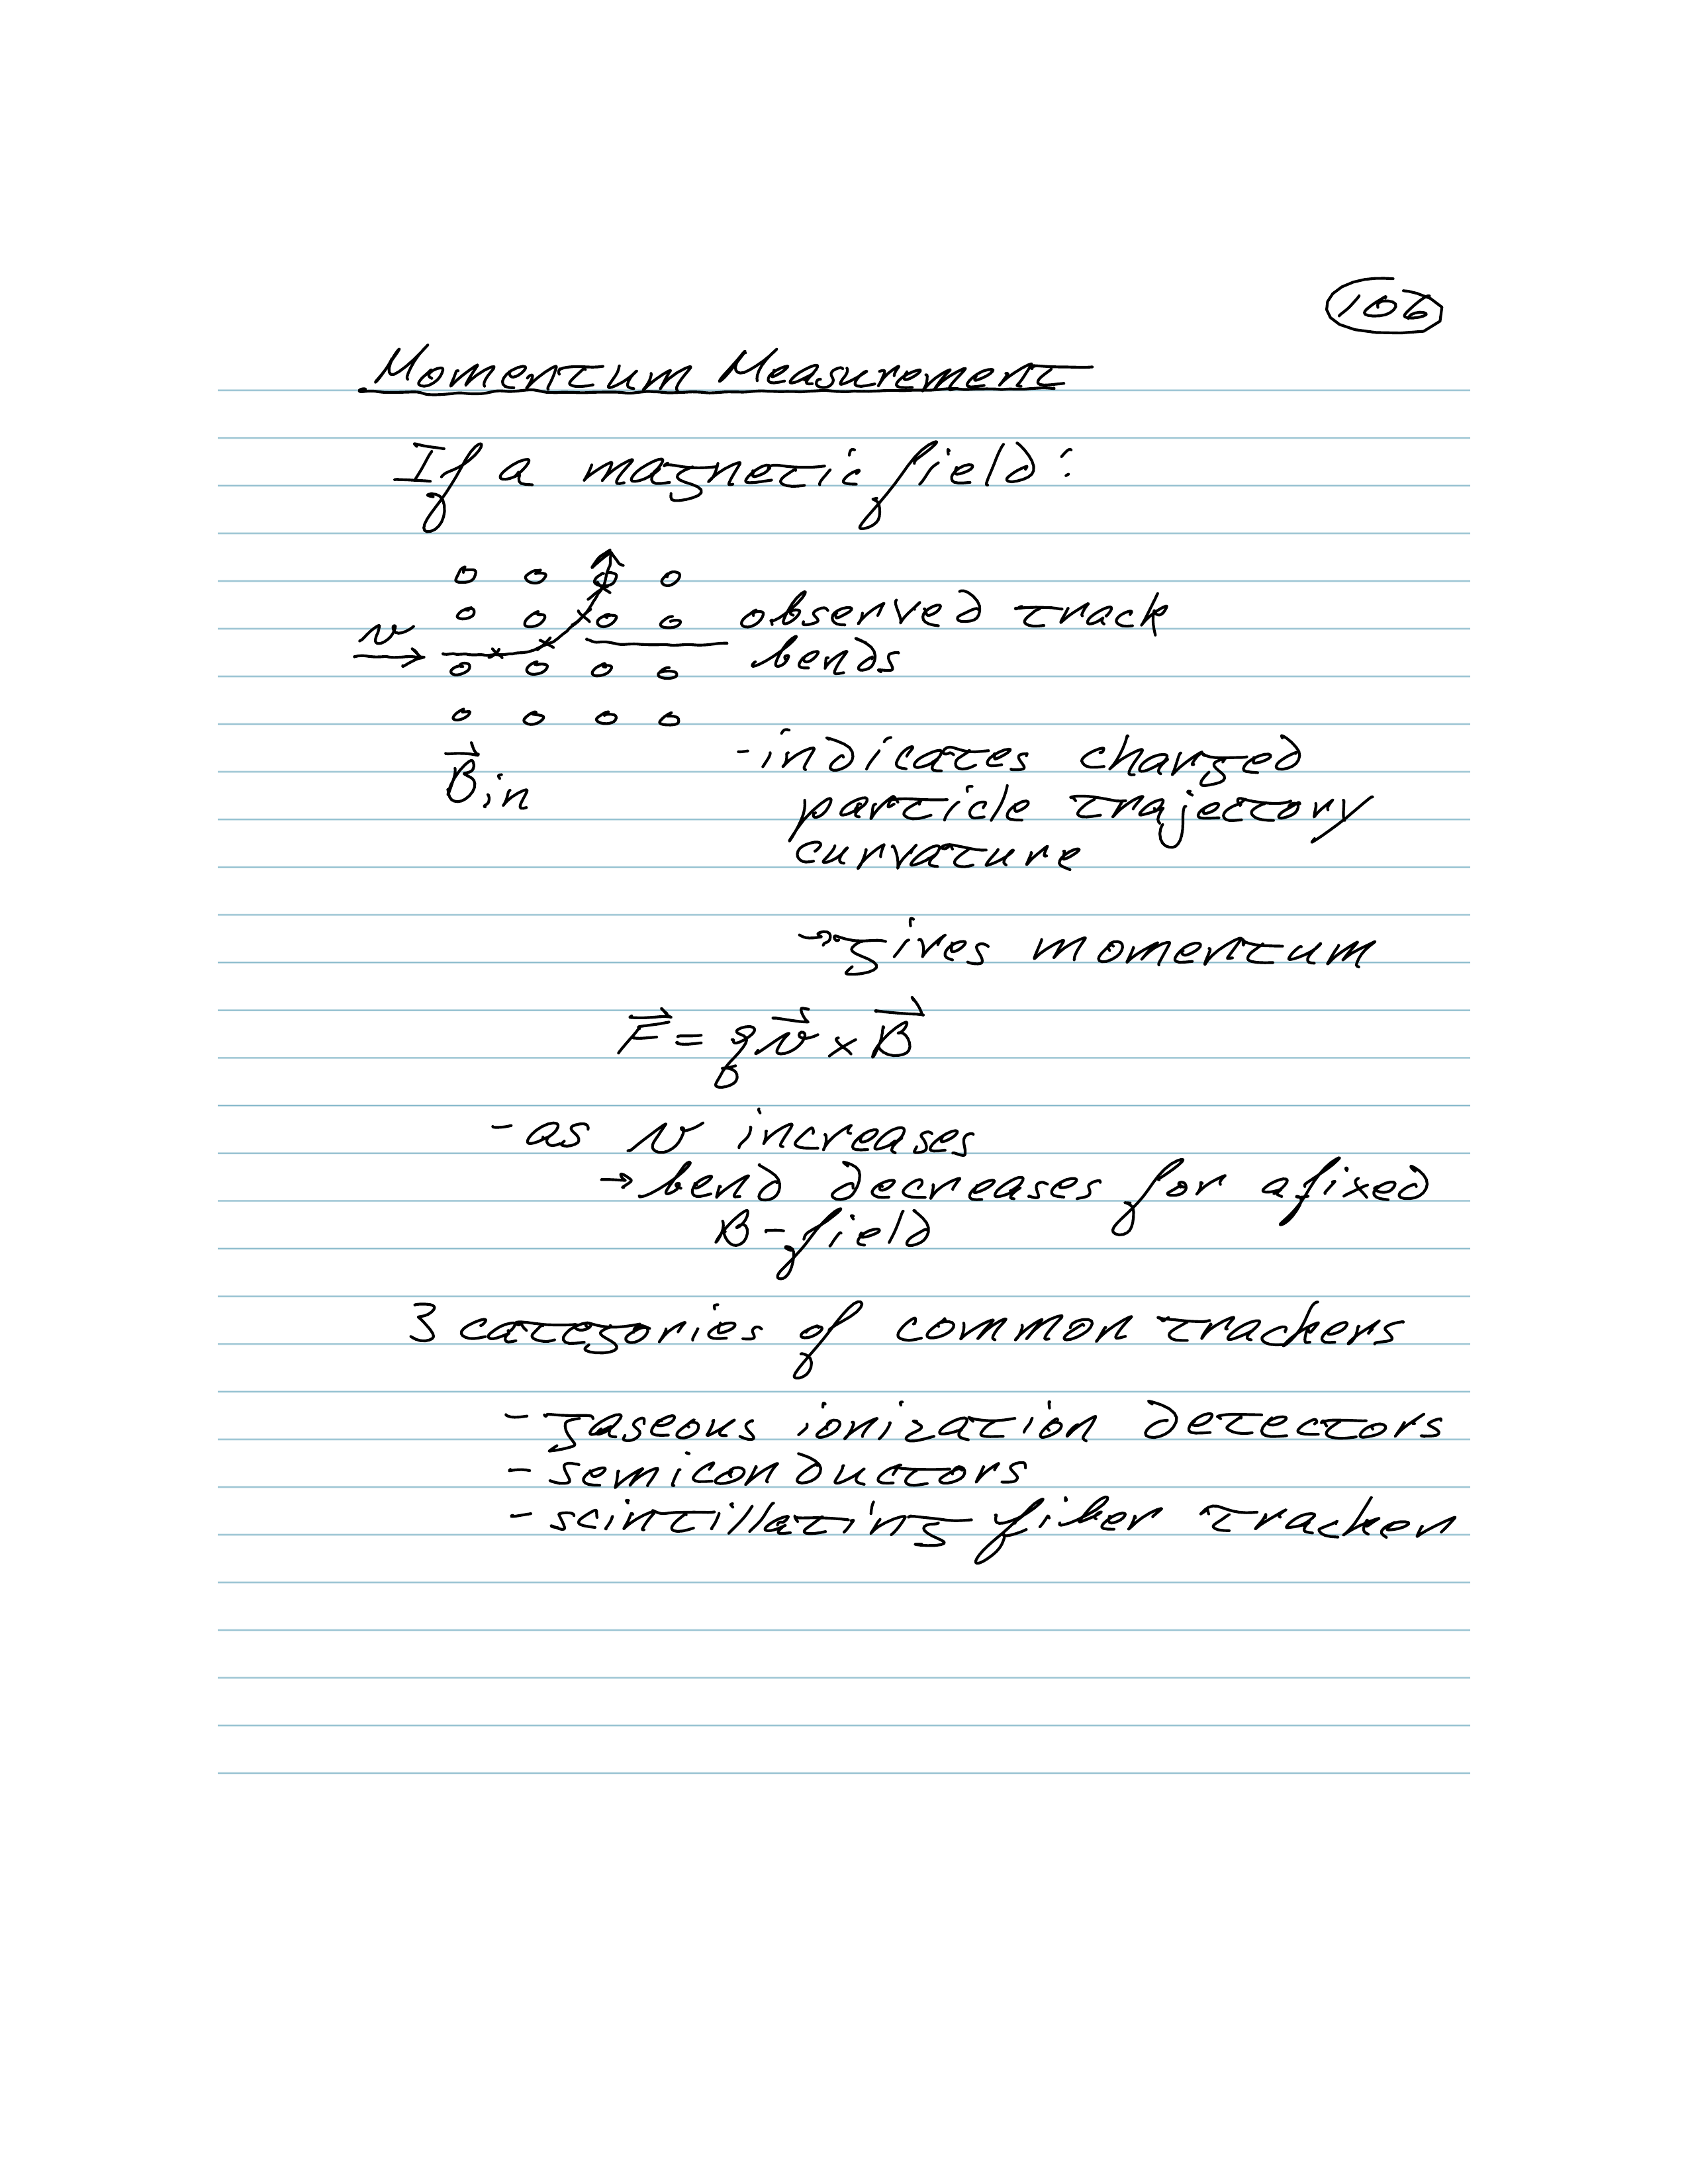 106
Momentum Measurement
If a magnetic field:
observed track
v
bends
B⃗in
-indicates charged
particle trajectory
curvature
→gives momentum
F⃗ = qv⃗ × B⃗
- as v increases
→ bend decreases for a fixed
B-field
3 categories of common trackers
- gaseous ionization detectors
- semiconductors
- scintillating fiber tracker